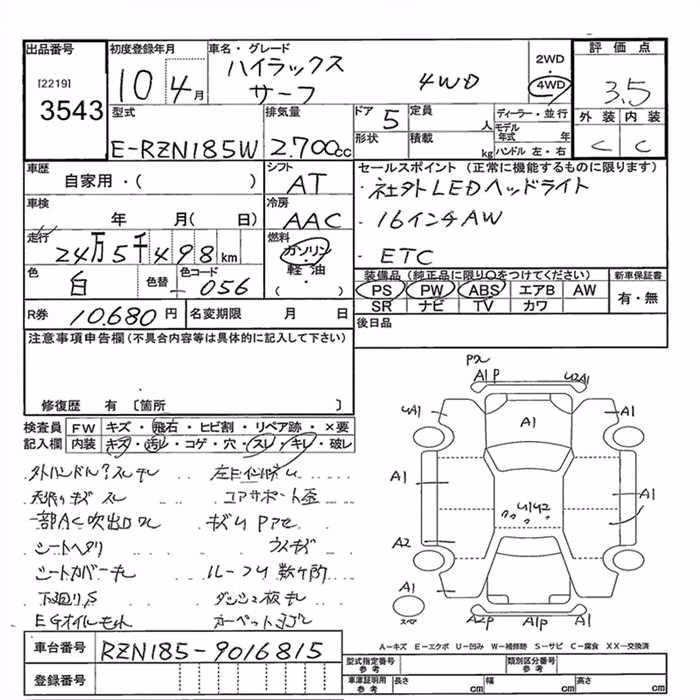 出品番号 初度登録年月 車名・グレード 評価点
[2219] 3543
10 4月
ハイラックス
サーフ
4WD
2WD
4WD
3.5
型式 E-RZN185W
排気量 2.700cc
ドア 5
定員 人
形状
積載 kg
ディーラー・並行
モデル年式 年
ハンドル 左・右
外装 内装
C C
車歴 自家用・( )
シフト AT
車検 年 月(日)
冷房 AAC
走行 24万5千498km
燃料 ガソリン・軽油・( )
色 白
色替
色コード 056
R券 10.680円
名変期限 月 日
セールスポイント (正常に機能するものに限ります)
・社外LEDヘッドライト
・16インチAW
・ETC
装備品(純正品に限り○をつけてください)
PS PW ABS エアB AW
SR ナビ TV カワ
新車保証書
有・無
後日品
注意事項申告欄(不具合内容等は具体的に記入して下さい)
修復歴 有 〔箇所 〕
検査員記入欄
FW キズ・飛石・ヒビ割・リペア跡・×要
内装 キズ・汚レ・コゲ・穴・スレ・キレ・破レ
天張りキズ スレ
コアサポート歪
一部AC吹出口ワレ
シートヘタリ
シートカバーキレ
ルーフU数ヶ所
下廻りS
EGオイルモレ
A1P U2A1
UA1 A1 A1
A1 A1
U1U2
A2
A1
A2P A1P A1
A-キズ E-エクボ U-凹み W-補修跡 S-サビ C-腐食 XX-交換済
車台番号 RZN185-9016815
登録番号
型式指定番号 参考
類別区分番号 参考
車庫証明用 参考
長さ cm 幅 cm 高さ cm